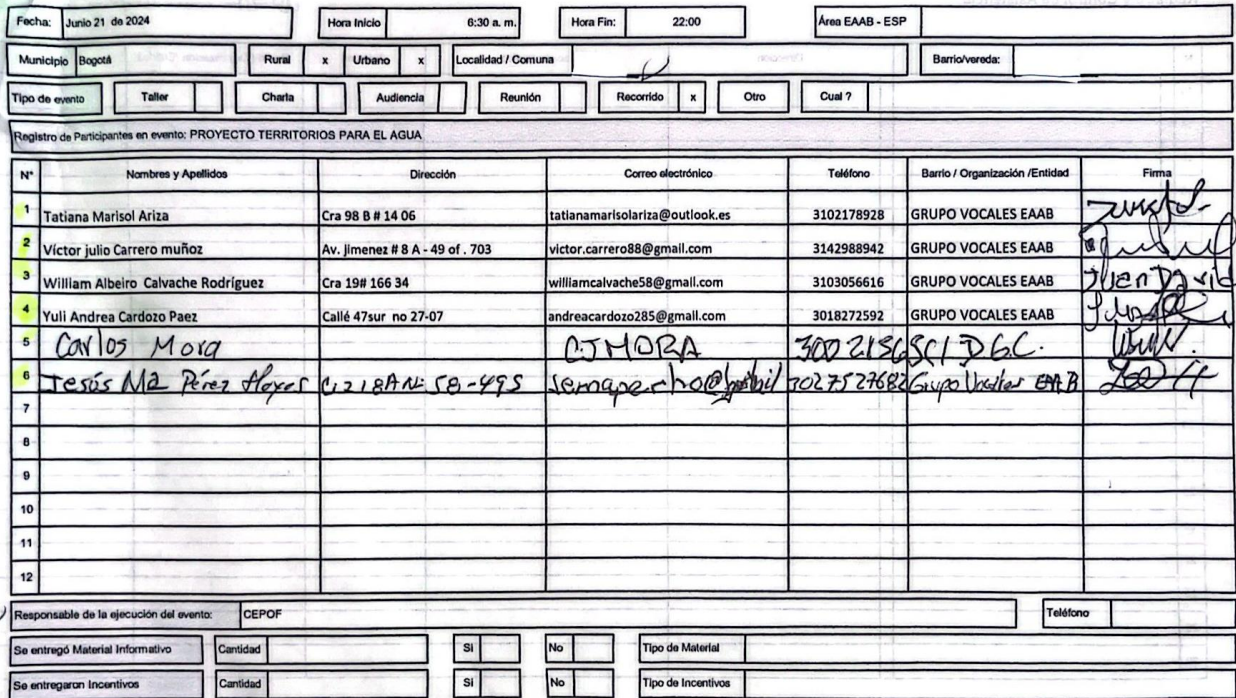 Fecha: Junio 21 de 2024 Hora Inicio 6:30 a. m. Hora Fin: 22:00 Área EAAB - ESP
Municipio Bogotá Rural x Urbano x Localidad / Comuna Barrio/vereda:
Tipo de evento Taller Charla Audiencia Reunión Recorrido x Otro Cual ?
Registro de Participantes en evento: PROYECTO TERRITORIOS PARA EL AGUA
N° Nombres y Apellidos Dirección Correo electrónico Teléfono Barrio / Organización /Entidad Firma
1 Tatiana Marisol Ariza Cra 98 B # 14 06 tatianamarisolariza@outlook.es 3102178928 GRUPO VOCALES EAAB
2 Víctor julio Carrero muñoz Av. Jimenez # 8 A - 49 of . 703 victor.carrero88@gmail.com 3142988942 GRUPO VOCALES EAAB
3 William Albeiro Calvache Rodríguez Cra 19# 166 34 williamcalvache58@gmail.com 3103056616 GRUPO VOCALES EAAB Juan David
4 Yuli Andrea Cardozo Paez Callé 47sur no 27-07 andreacardozo285@gmail.com 3018272592 GRUPO VOCALES EAAB
5 Carlos Mora CJMORA 3002156 D.G.C.
6 Jesús Ma Pérez 58-495 3027527682 Grupo Vocales EAAB
7
8
9
10
11
12
Responsable de la ejecución del evento: CEPOF Teléfono
Se entregó Material Informativo Cantidad Si No Tipo de Material
Se entregaron Incentivos Cantidad Si No Tipo de Incentivos